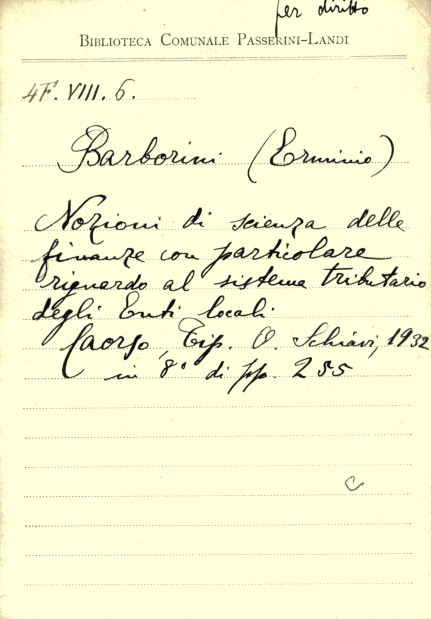 per diritto
BIBLIOTECA COMUNALE PASSERINI-LANDI
4F. VIII. 6.
Barborini (Erminio)
Nozioni di scienza delle
finanze con particolare
riguardo al sistema tributario
degli Enti locali
Caorso, Tip. O. Schiavi, 1932
in 8° di pp. 255
C